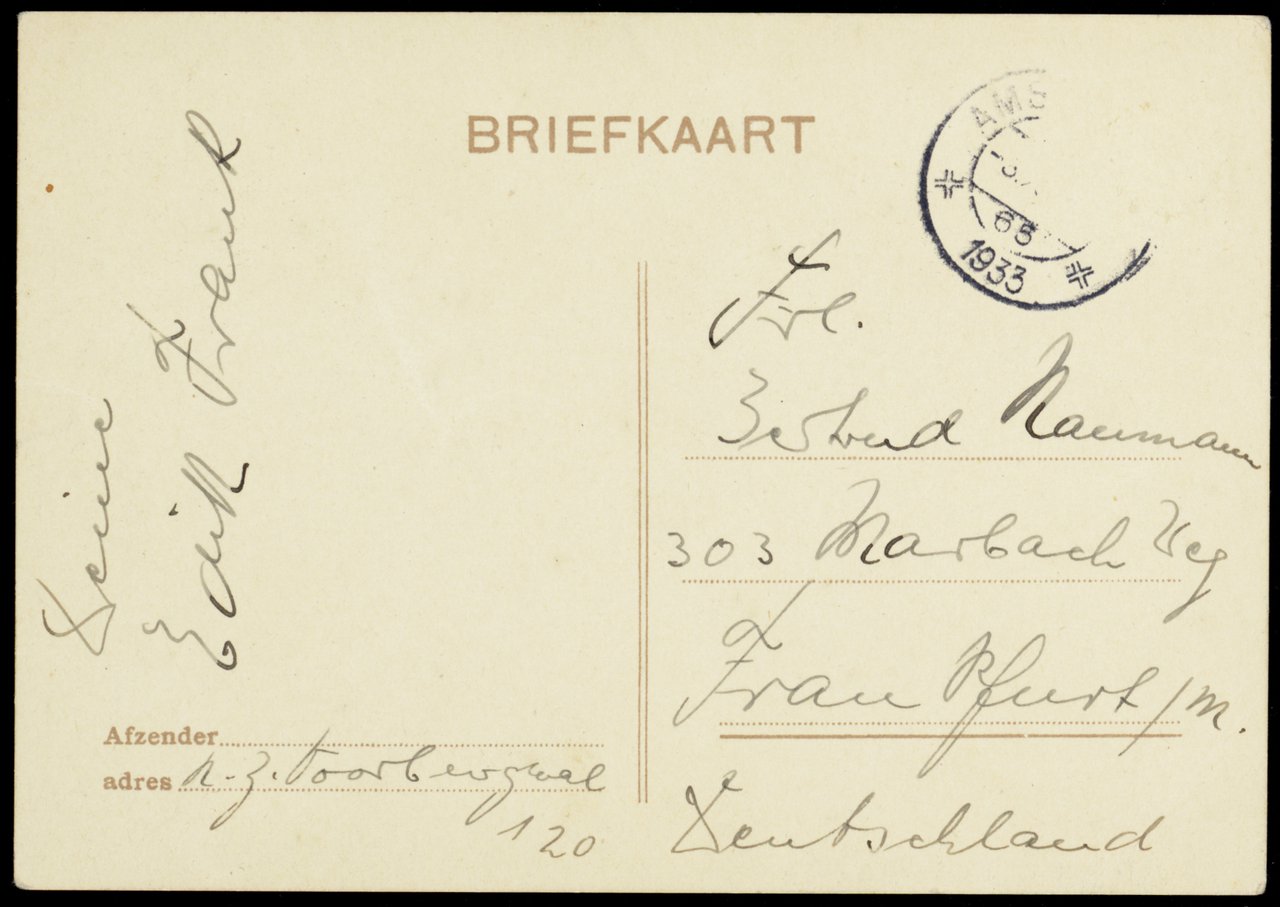 BRIEFKAART
AMS
65
1933
Deine
Edith Frank
Frl.
Gertrud Naumann
303 Marbach Weg
Frankfurt/M.
Deutschland
Afzender
adres N. Z. Voorburgwal
120